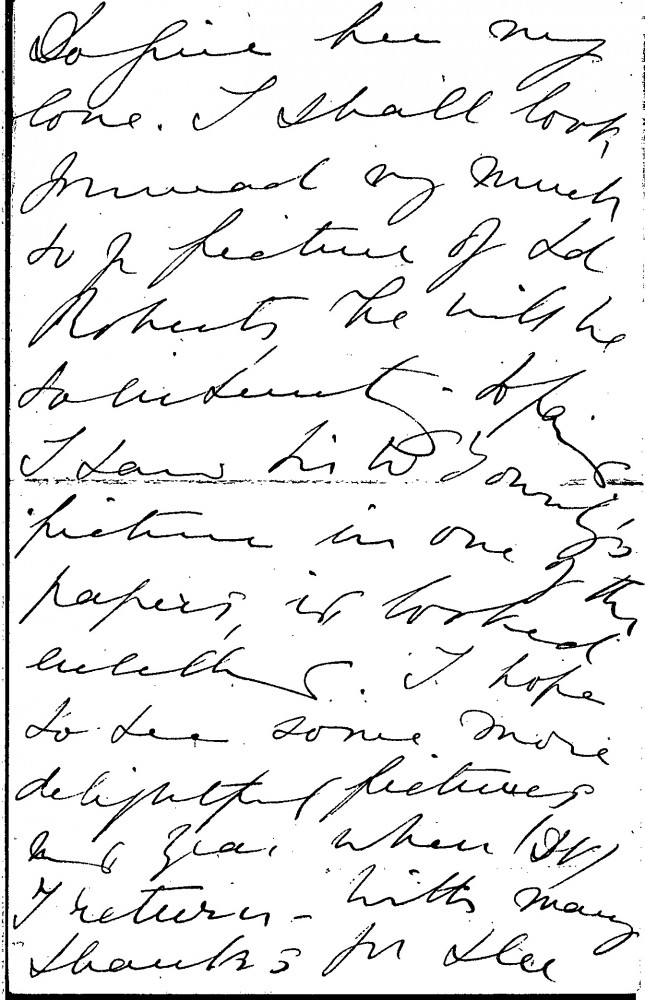 Do give her my
love. I shall look
forward very much
to yr picture of Ld
Roberts, he will be
so interesting to paint
I saw Sir W
picture in one of the
papers, it looked
excellent. I hope
to see some more
delightful pictures
next year when (DV)
I return - With many
thanks for the